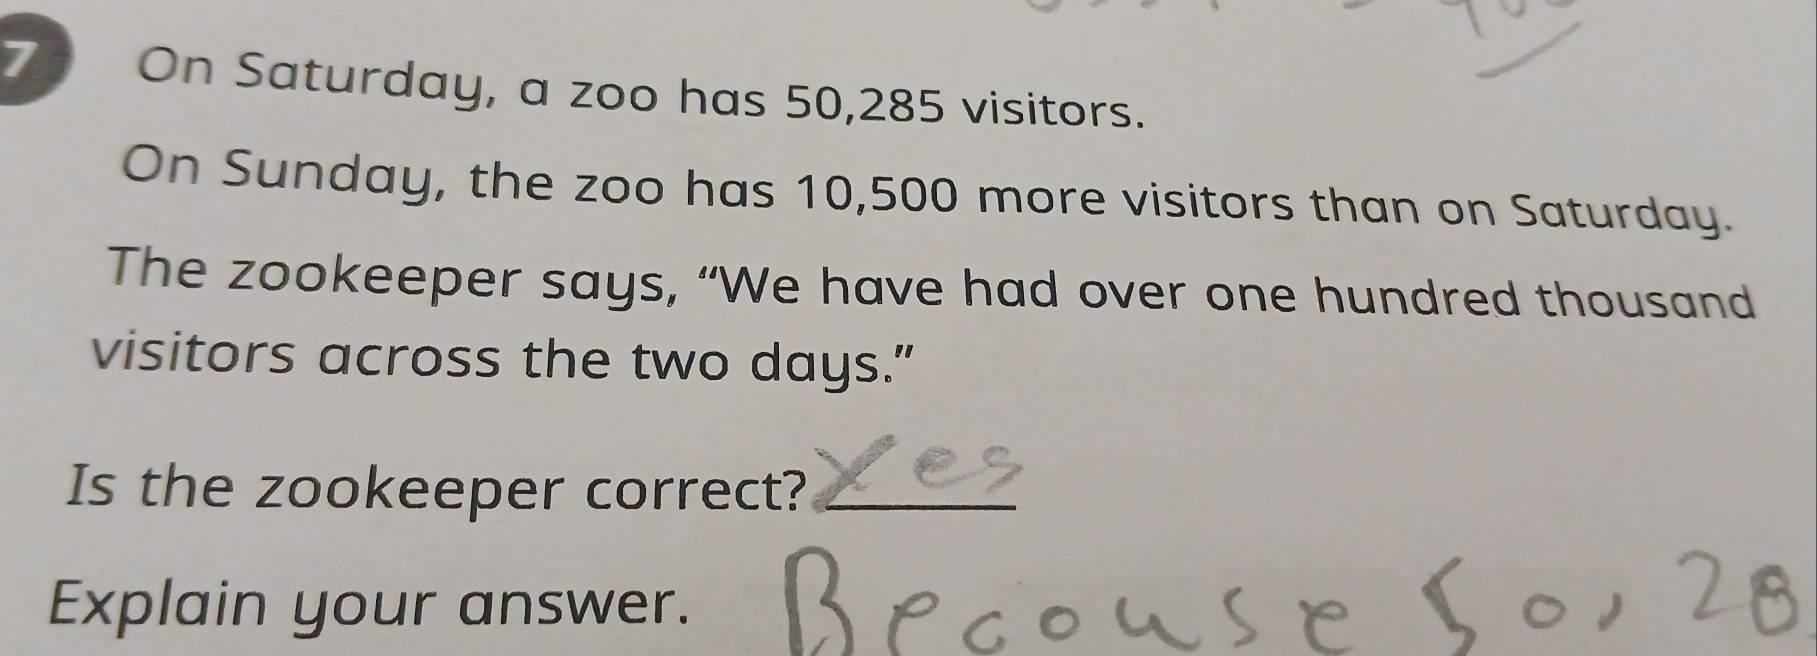 7 On Saturday, a zoo has 50,285 visitors.
On Sunday, the zoo has 10,500 more visitors than on Saturday.
The zookeeper says, “We have had over one hundred thousand
visitors across the two days.”
Is the zookeeper correct? Yes
Explain your answer. Becouse 50,28